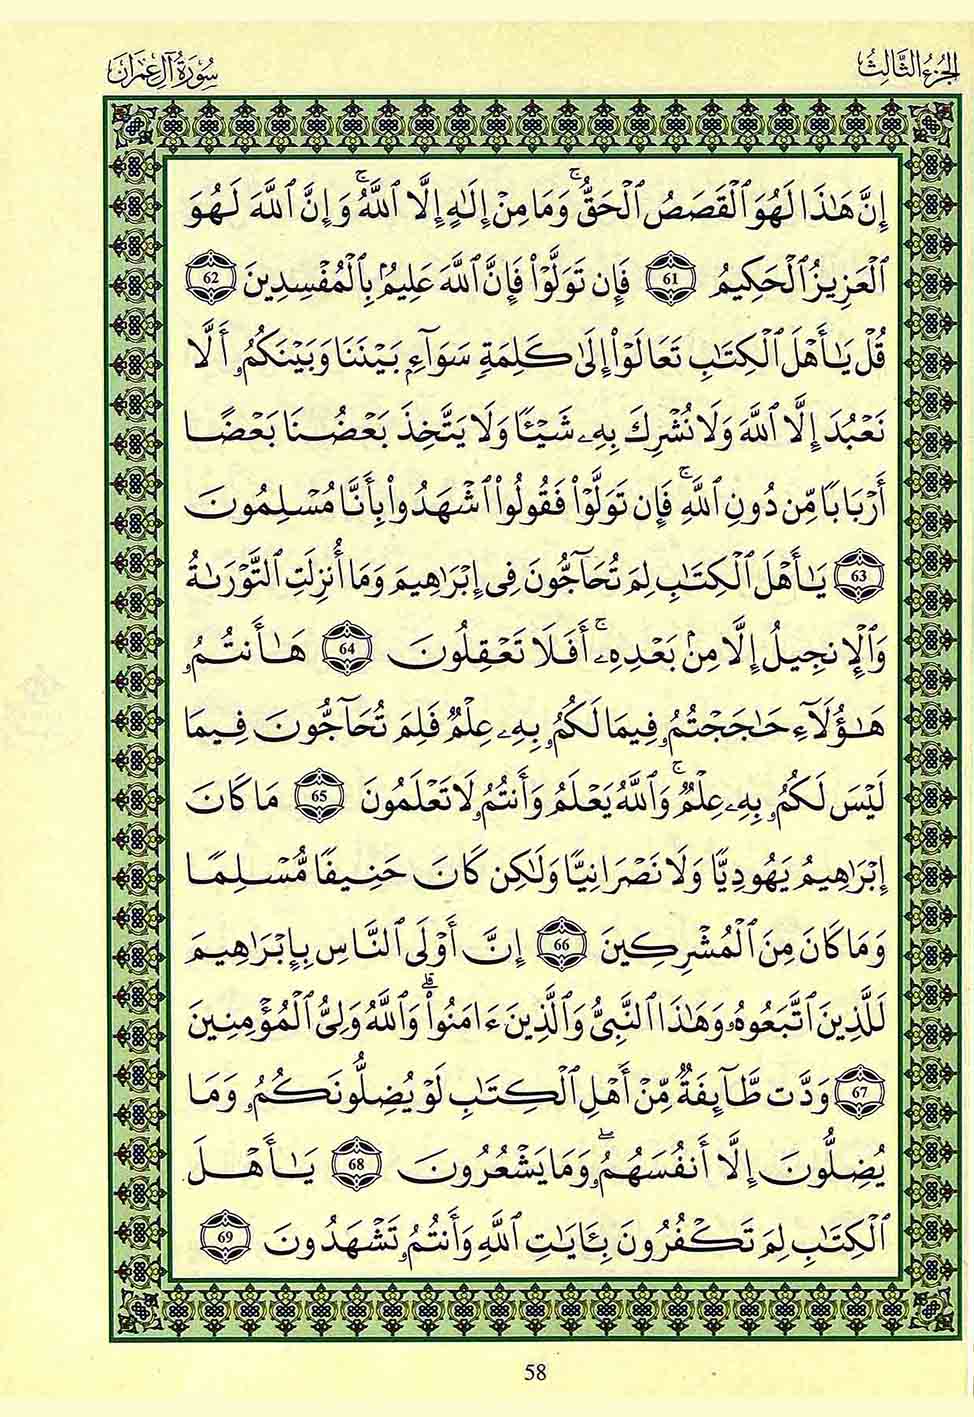 الجزء الثالث
سورة آل عمران
إِنَّ هَٰذَا لَهُوَ ٱلْقَصَصُ ٱلْحَقُّ ۚ وَمَا مِنْ إِلَٰهٍ إِلَّا ٱللَّهُ ۚ وَإِنَّ ٱللَّهَ لَهُوَ
ٱلْعَزِيزُ ٱلْحَكِيمُ 61 فَإِن تَوَلَّوْا۟ فَإِنَّ ٱللَّهَ عَلِيمٌۢ بِٱلْمُفْسِدِينَ 62
قُلْ يَٰأَهْلَ ٱلْكِتَٰبِ تَعَالَوْا۟ إِلَىٰ كَلِمَةٍ سَوَآءٍۭ بَيْنَنَا وَبَيْنَكُمُۥ أَلَّا
نَعْبُدَ إِلَّا ٱللَّهَ وَلَا نُشْرِكَ بِهِۦ شَيْـًٔا وَلَا يَتَّخِذَ بَعْضُنَا بَعْضًا
أَرْبَابًا مِّن دُونِ ٱللَّهِ ۚ فَإِن تَوَلَّوْا۟ فَقُولُوا۟ ٱشْهَدُوا۟ بِأَنَّا مُسْلِمُونَ
63 يَٰأَهْلَ ٱلْكِتَٰبِ لِمَ تُحَآجُّونَ فِى إِبْرَٰهِيمَ وَمَا أُنزِلَتِ ٱلتَّوْرَىٰةُ
وَٱلْإِنجِيلُ إِلَّا مِنۢ بَعْدِهِۦ ۚ أَفَلَا تَعْقِلُونَ 64 هَٰأَنتُمُۥ
هَٰؤُلَآءِ حَٰجَجْتُمُۥ فِيمَا لَكُمُۥ بِهِۦ عِلْمٌ فَلِمَ تُحَآجُّونَ فِيمَا
لَيْسَ لَكُمُۥ بِهِۦ عِلْمٌ ۚ وَٱللَّهُ يَعْلَمُ وَأَنتُمُۥ لَا تَعْلَمُونَ 65 مَا كَانَ
إِبْرَٰهِيمُ يَهُودِيًّا وَلَا نَصْرَانِيًّا وَلَٰكِن كَانَ حَنِيفًا مُّسْلِمًا
وَمَا كَانَ مِنَ ٱلْمُشْرِكِينَ 66 إِنَّ أَوْلَى ٱلنَّاسِ بِإِبْرَٰهِيمَ
لَلَّذِينَ ٱتَّبَعُوهُۥ وَهَٰذَا ٱلنَّبِىُّ وَٱلَّذِينَ ءَامَنُوا۟ ۗ وَٱللَّهُ وَلِىُّ ٱلْمُؤْمِنِينَ
67 وَدَّت طَّآئِفَةٌ مِّنْ أَهْلِ ٱلْكِتَٰبِ لَوْ يُضِلُّونَكُمُۥ وَمَا
يُضِلُّونَ إِلَّا أَنفُسَهُمُۥ ۖ وَمَا يَشْعُرُونَ 68 يَٰأَهْلَ
ٱلْكِتَٰبِ لِمَ تَكْفُرُونَ بِـَٔايَٰتِ ٱللَّهِ وَأَنتُمُۥ تَشْهَدُونَ 69
58